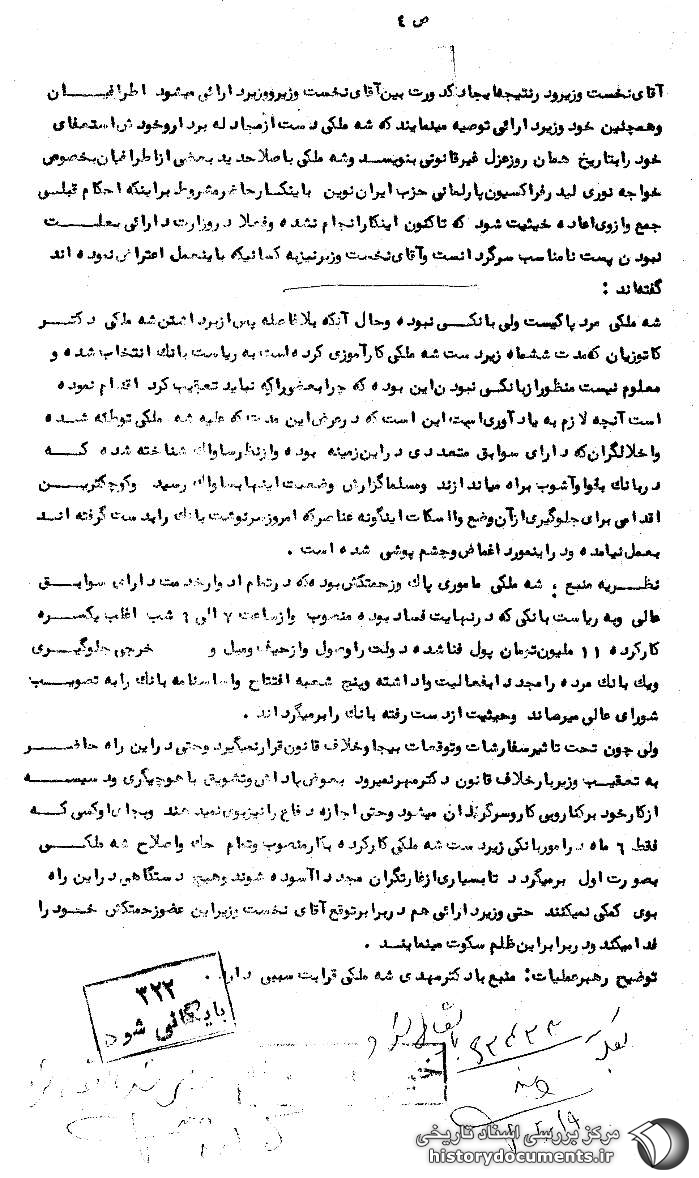 ص ٤
آقای نخست وزیرود رنتیجه ایجاد کدورت بین آقای نخست وزیر و وزیرد ارائی میشود اطرافیان
وهمچنین خود وزیرد ارائی توصیه مینمایند که شه ملکی دست ازمجاد له برد اروخود ش استعفای
خود رابتاریخ همان روزعزل غیرقانونی بنویسد وشه ملکی باصلاحدید بعضی ازاطرافیان بخصوص
خواجه نوری لید رفراکسیون پارلمانی حزب ایران نوین باینکارحاضرمشروط براینکه احکام قبلی
جمع وازوی اعاده حیثیت شود که تاکنون اینکارانجام نشده وفعلا د روزارت دارائی بعلت
نبودن پست نامناسب سرگردانست وآقای نخست وزیرنیزبه کسانیکه باینعمل اعتراض نموده اند
گفته اند :
شه ملکی مرد پاکیست ولی بانکی نبوده وحال آنکه بلافاصله پس ازبرداشتن شه ملکی دکتر
کاتوزیان که مدت ششماه زیرد ست شه ملکی کارآموزی کرده است به ریاست بانك انتخاب شده و
معلوم نیست منظورازبانکی نبودن این بوده که چرابحضوراکه نباید تعقیب کرد اقدام نموده
است آنچه لازم به یاد آوری است این است که درعرض این مدت که علیه شه ملکی توطئه شده
واخلالگران که دارای سوابق متعددی دراین زمینه بوده وازنظرساواك شناخته شده که
دربانك بلوا وآشوب براه میاندازند ومسلما گزارش وضعیت اینها بساواك رسید وکوچکترین
اقدامی برای جلوگیری ازآن وضع واسکات اینگونه عناصرکه امروزسرنوشت بانك رابدست گرفته اند
بعمل نیامده ود راینمورد اغماض وچشم پوشی شده است .
نظریه منبع : شه ملکی ماموری پاك وزحمتکش بوده که درتمام ادوارخدمت دارای سوابق
عالی وبه ریاست بانکی که درنهایت فساد بوده منصوب وازساعت ۷ الی ۹ شب اغلب یکسره
کارکرده ۱۱ ملیون تومان پول فناشده دولت راوصول وازحیف ومیل و خرجی جلوگیری
ویك بانك مرده رامجددا بفعالیت واداشته وپنج شعبه افتتاح واساسنامه بانك رابه تصویب
شورای عالی میرساند وحیثیت ازدست رفته بانك رابرمیگرداند .
ولی چون تحت تاثیرسفارشات وتوقعات بیجا وخلاف قانون قرارنمیگیرد وحتی دراین راه حاضر
به تعقیب وزیربارخلاف قانون دکترمهرنمیرود بعوض پاداش وتشویق باهوچیگری ودسیسه
ازکارخود برکناروبی کاروسرگردان میشود وحتی اجازه دفاع رانیزبوی نمیدهند وبجای اوکسی که
فقط ٦ ماه دراموربانکی زیردست شه ملکی کارکرده بکارمنصوب وتمام حك واصلاح شه ملکی
بصورت اول برمیگردد تابسیاری ازغارتگران مجددا آسوده شوند وهیچ دستگاهی دراین راه
بوی کمکی نمیکنند حتی وزیردارائی هم دربرابرتوقع آقای نخست وزیراین عضوزحمتکش خود را
فدامیکند ودربرابراین ظلم سکوت مینمایند .
توضیح رهبرعملیات : منبع بادکترمهدی شه ملکی قرابت سببی دارد .
۳۲۲
بایگانی شود
مرکز بررسی اسناد تاریخی
historydocuments.ir